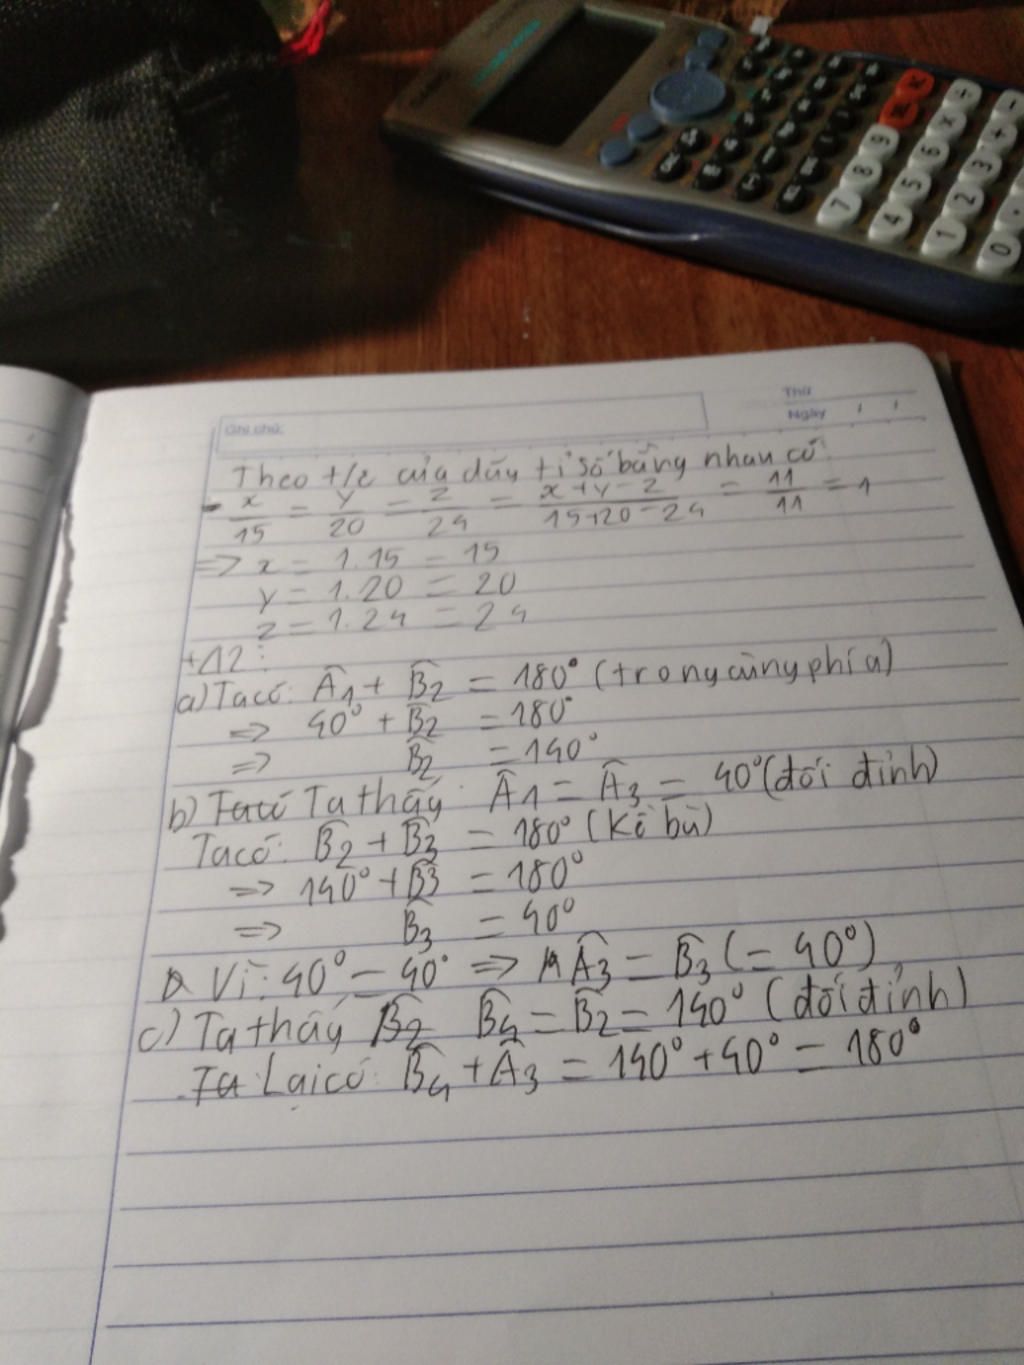 Thứ
Ngày / /
Ghi chú:
Theo t/c của dãy tỉ số bằng nhau có
- x/15 = y/20 = z/24 = x+y-z/15+20-24 = 11/11 = 1
=> x = 1.15 = 15
y = 1.20 = 20
z = 1.24 = 24
a) Ta có: Â1 + B̂2 = 180° (trong cùng phía)
=> 40° + B̂2 = 180°
=> B̂2 = 140°
b) Ta có Ta thấy: Â1 = Â3 = 40° (đối đỉnh)
Ta có: B̂2 + B̂3 = 180° (Kề bù)
=> 140° + B̂3 = 180°
=> B̂3 = 40°
Vì: 40° = 40° => Â3 = B̂3 (= 40°)
c) Ta thấy B̂2 B̂4 = B̂2 = 140° (đối đỉnh)
Ta Lại có: B̂4 + Â3 = 140° + 40° = 180°
CASIO
7 8 9
4 5 6 × ÷
1 2 3 + -
0 .